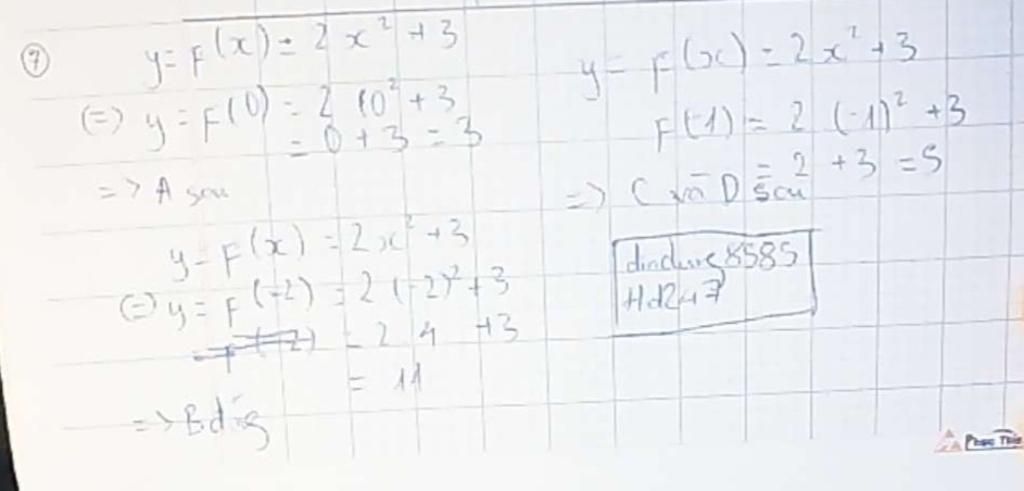 7
y = F(x) = 2x² + 3
(=) y = F(0) = 2 (0² + 3
= 0 + 3 = 3
=> A sai
y = F(x) = 2x² + 3
(=) y = F(-2) = 2 (-2)² + 3
= 2 4 + 3
= 11
=> B đúng
y = F(x) = 2x² + 3
F(-1) = 2 (-1)² + 3
= 2 + 3 = 5
=> C và D sai
dindung8585
Hd247